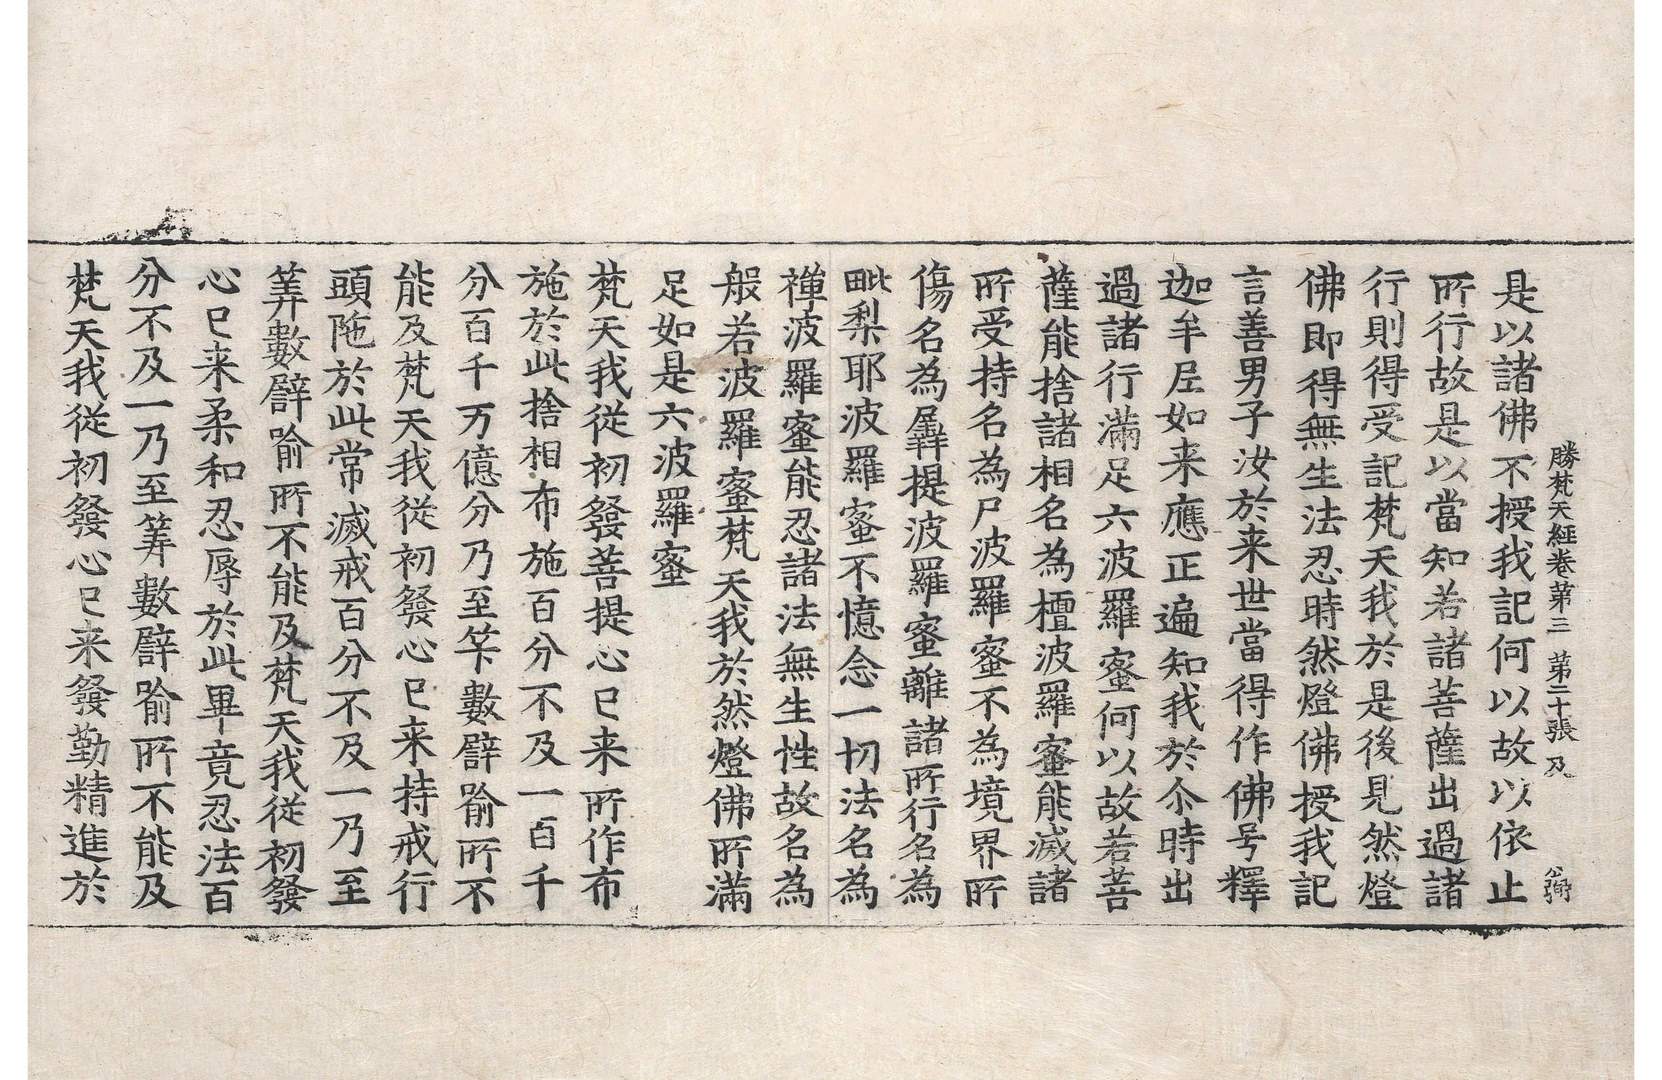 勝梵天經卷第三 第二十張 及
是以諸佛不授我記何以故以依止
所行故是以當知若諸菩薩出過諸
行則得受記梵天我於是後見然燈
佛即得無生法忍時然燈佛授我記
言善男子汝於来世當得作佛号釋
迦牟尼如来應正遍知我於尒時出
過諸行滿足六波羅蜜何以故若菩
薩能捨諸相名為檀波羅蜜能滅諸
所受持名為尸波羅蜜不為境界所
傷名為羼提波羅蜜離諸所行名為
毗梨耶波羅蜜不憶念一切法名為
禪波羅蜜能忍諸法無生性故名為
般若波羅蜜梵天我於然燈佛所滿
足如是六波羅蜜
梵天我從初發菩提心已来所作布
施於此捨相布施百分不及一百千
分百千万億分乃至筭數譬喻所不
能及梵天我從初發心已来持戒行
頭陁於此常滅戒百分不及一乃至
筭數譬喻所不能及梵天我從初發
心已来柔和忍辱於此畢竟忍法百
分不及一乃至筭數譬喻所不能及
梵天我從初發心已来發勤精進於